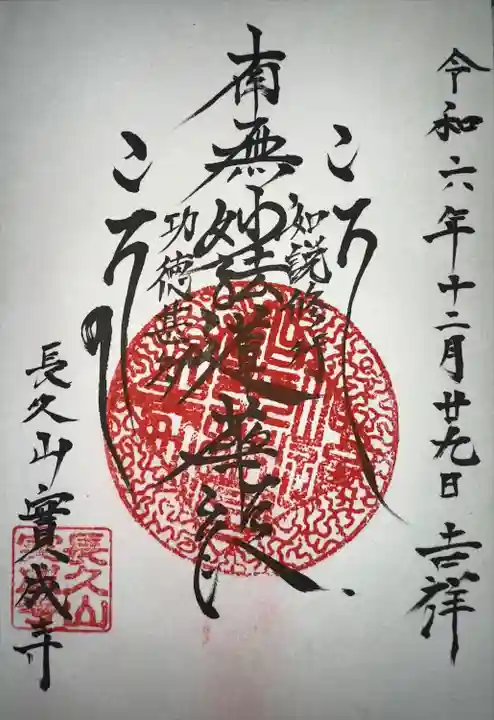 令和六年十二月廿九日 吉祥
如説修行
南無妙法蓮華経
功徳甚多
長久山實成寺